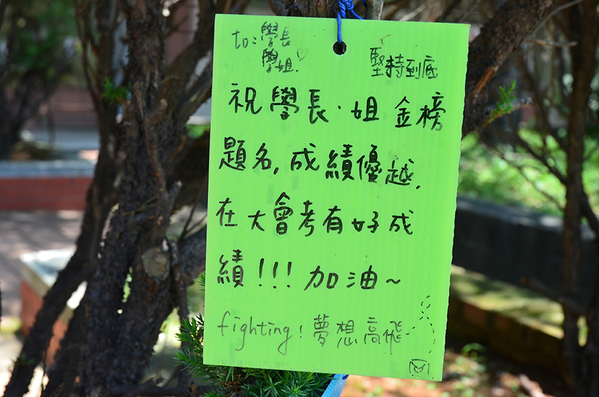 to:學長
學姐.
堅持到底
祝學長.姐金榜
題名,成績優越.
在大會考有好成
績!!!加油~
fighting!夢想高飛